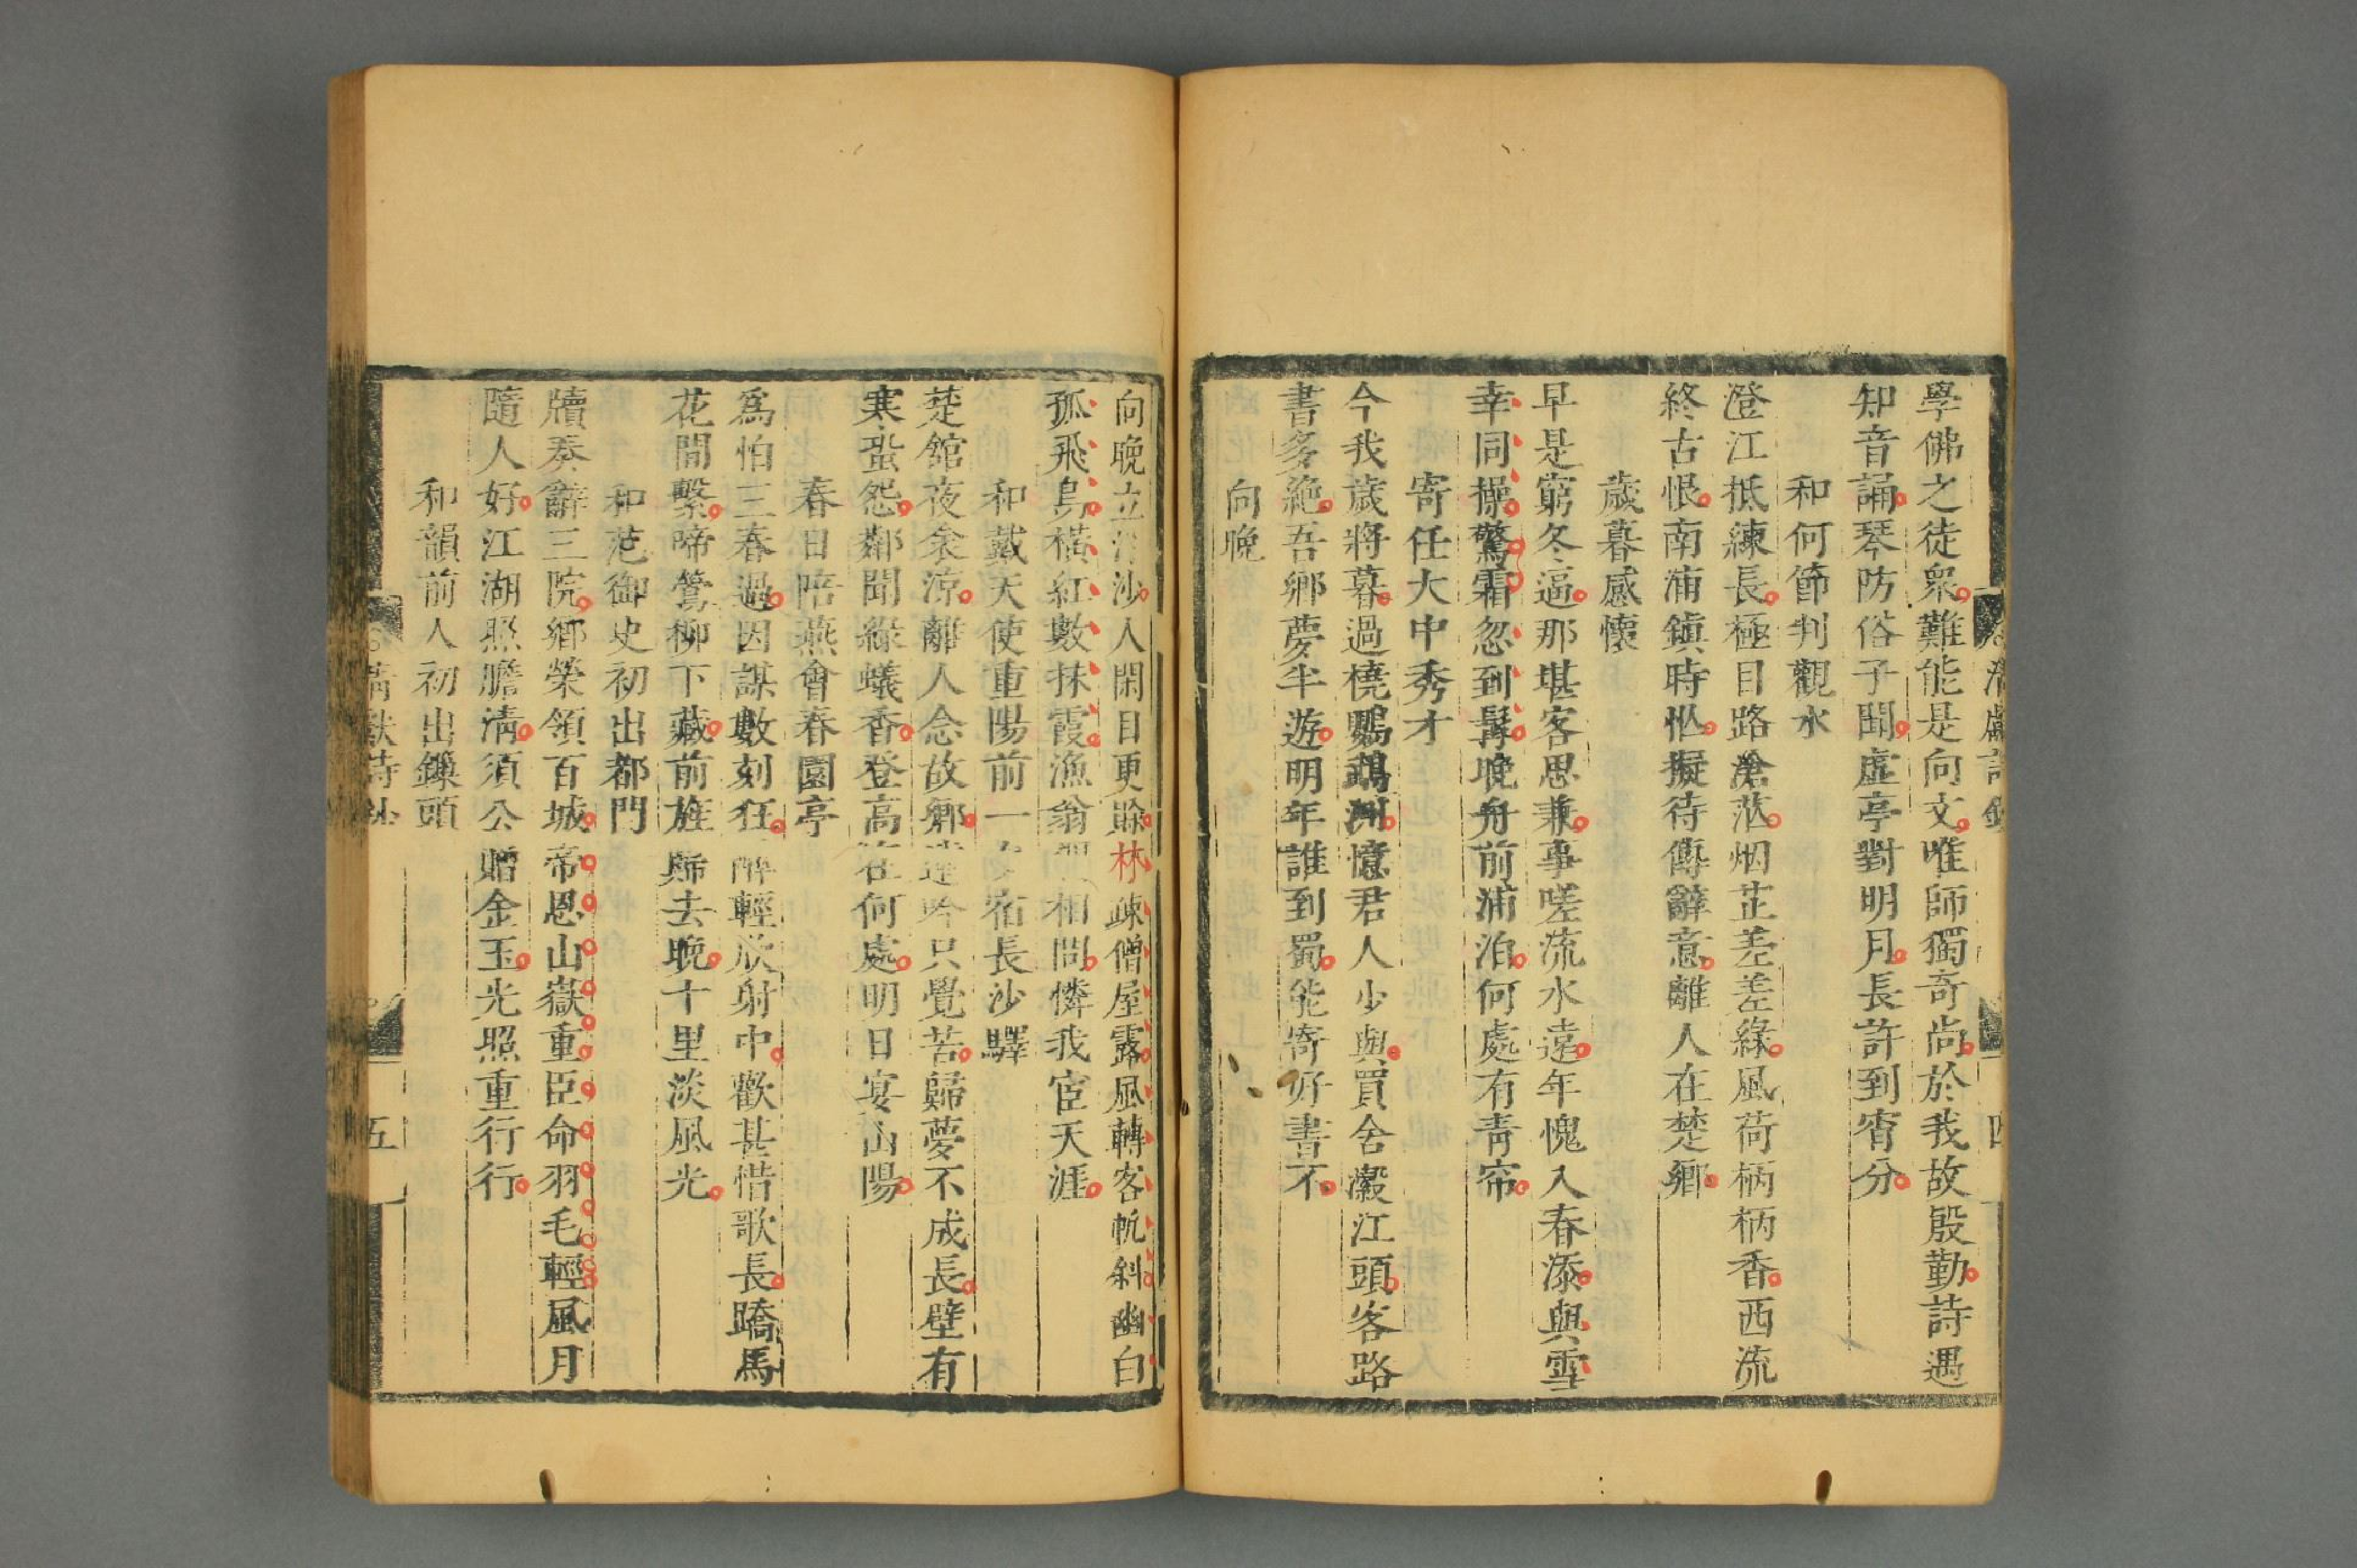 學佛之徒衆難能是向文唯師獨奇尚於我故殷勤詩遇
知音誦琴防俗子聞虛亭對明月長許到宵分
和何節判觀水
澄江抵練長極目路滄茫烟芷差差綠風荷柄柄香西流
終古恨南浦鎮時怭擬待傳辭意離人在楚鄉
歲暮感懷
早是窮冬逼那堪客思兼事嗟流水遠年愧入春添與雪
幸同操驚霜忽到髯晚舟前浦泊何處有青帘
寄任大中秀才
今我歲將暮過橈鸚鵡洲憶君人少與買舍瀫江頭客路
書多絶吾鄉夢半遊明年誰到蜀能寄好書不
向晚
四
向晚立沙人閑目更賖林疎僧屋露風轉客帆斜幽白
孤飛鳥橫紅數抹霞漁翁相問憐我宦天涯
和戴天使重陽前一宿長沙驛
楚舘夜衾涼離人念故鄉吟只覺苦歸夢不成長壁有
寒蛩怨鄰聞綠蟻香登高在何處明日宴山陽
春日陪燕會春園亭
爲怕三春過因謀數刻狂醉輕欣射中歡甚惜歌長驕馬
花間繫啼鶯柳下藏前旌歸去晚十里淡風光
和范御史初出都門
牘奏辭三院鄉榮領百城帝恩山嶽重臣命羽毛輕風月
隨人好江湖照膽淸須公贈金玉光照重行行
和韻前人初出鏁頭
五